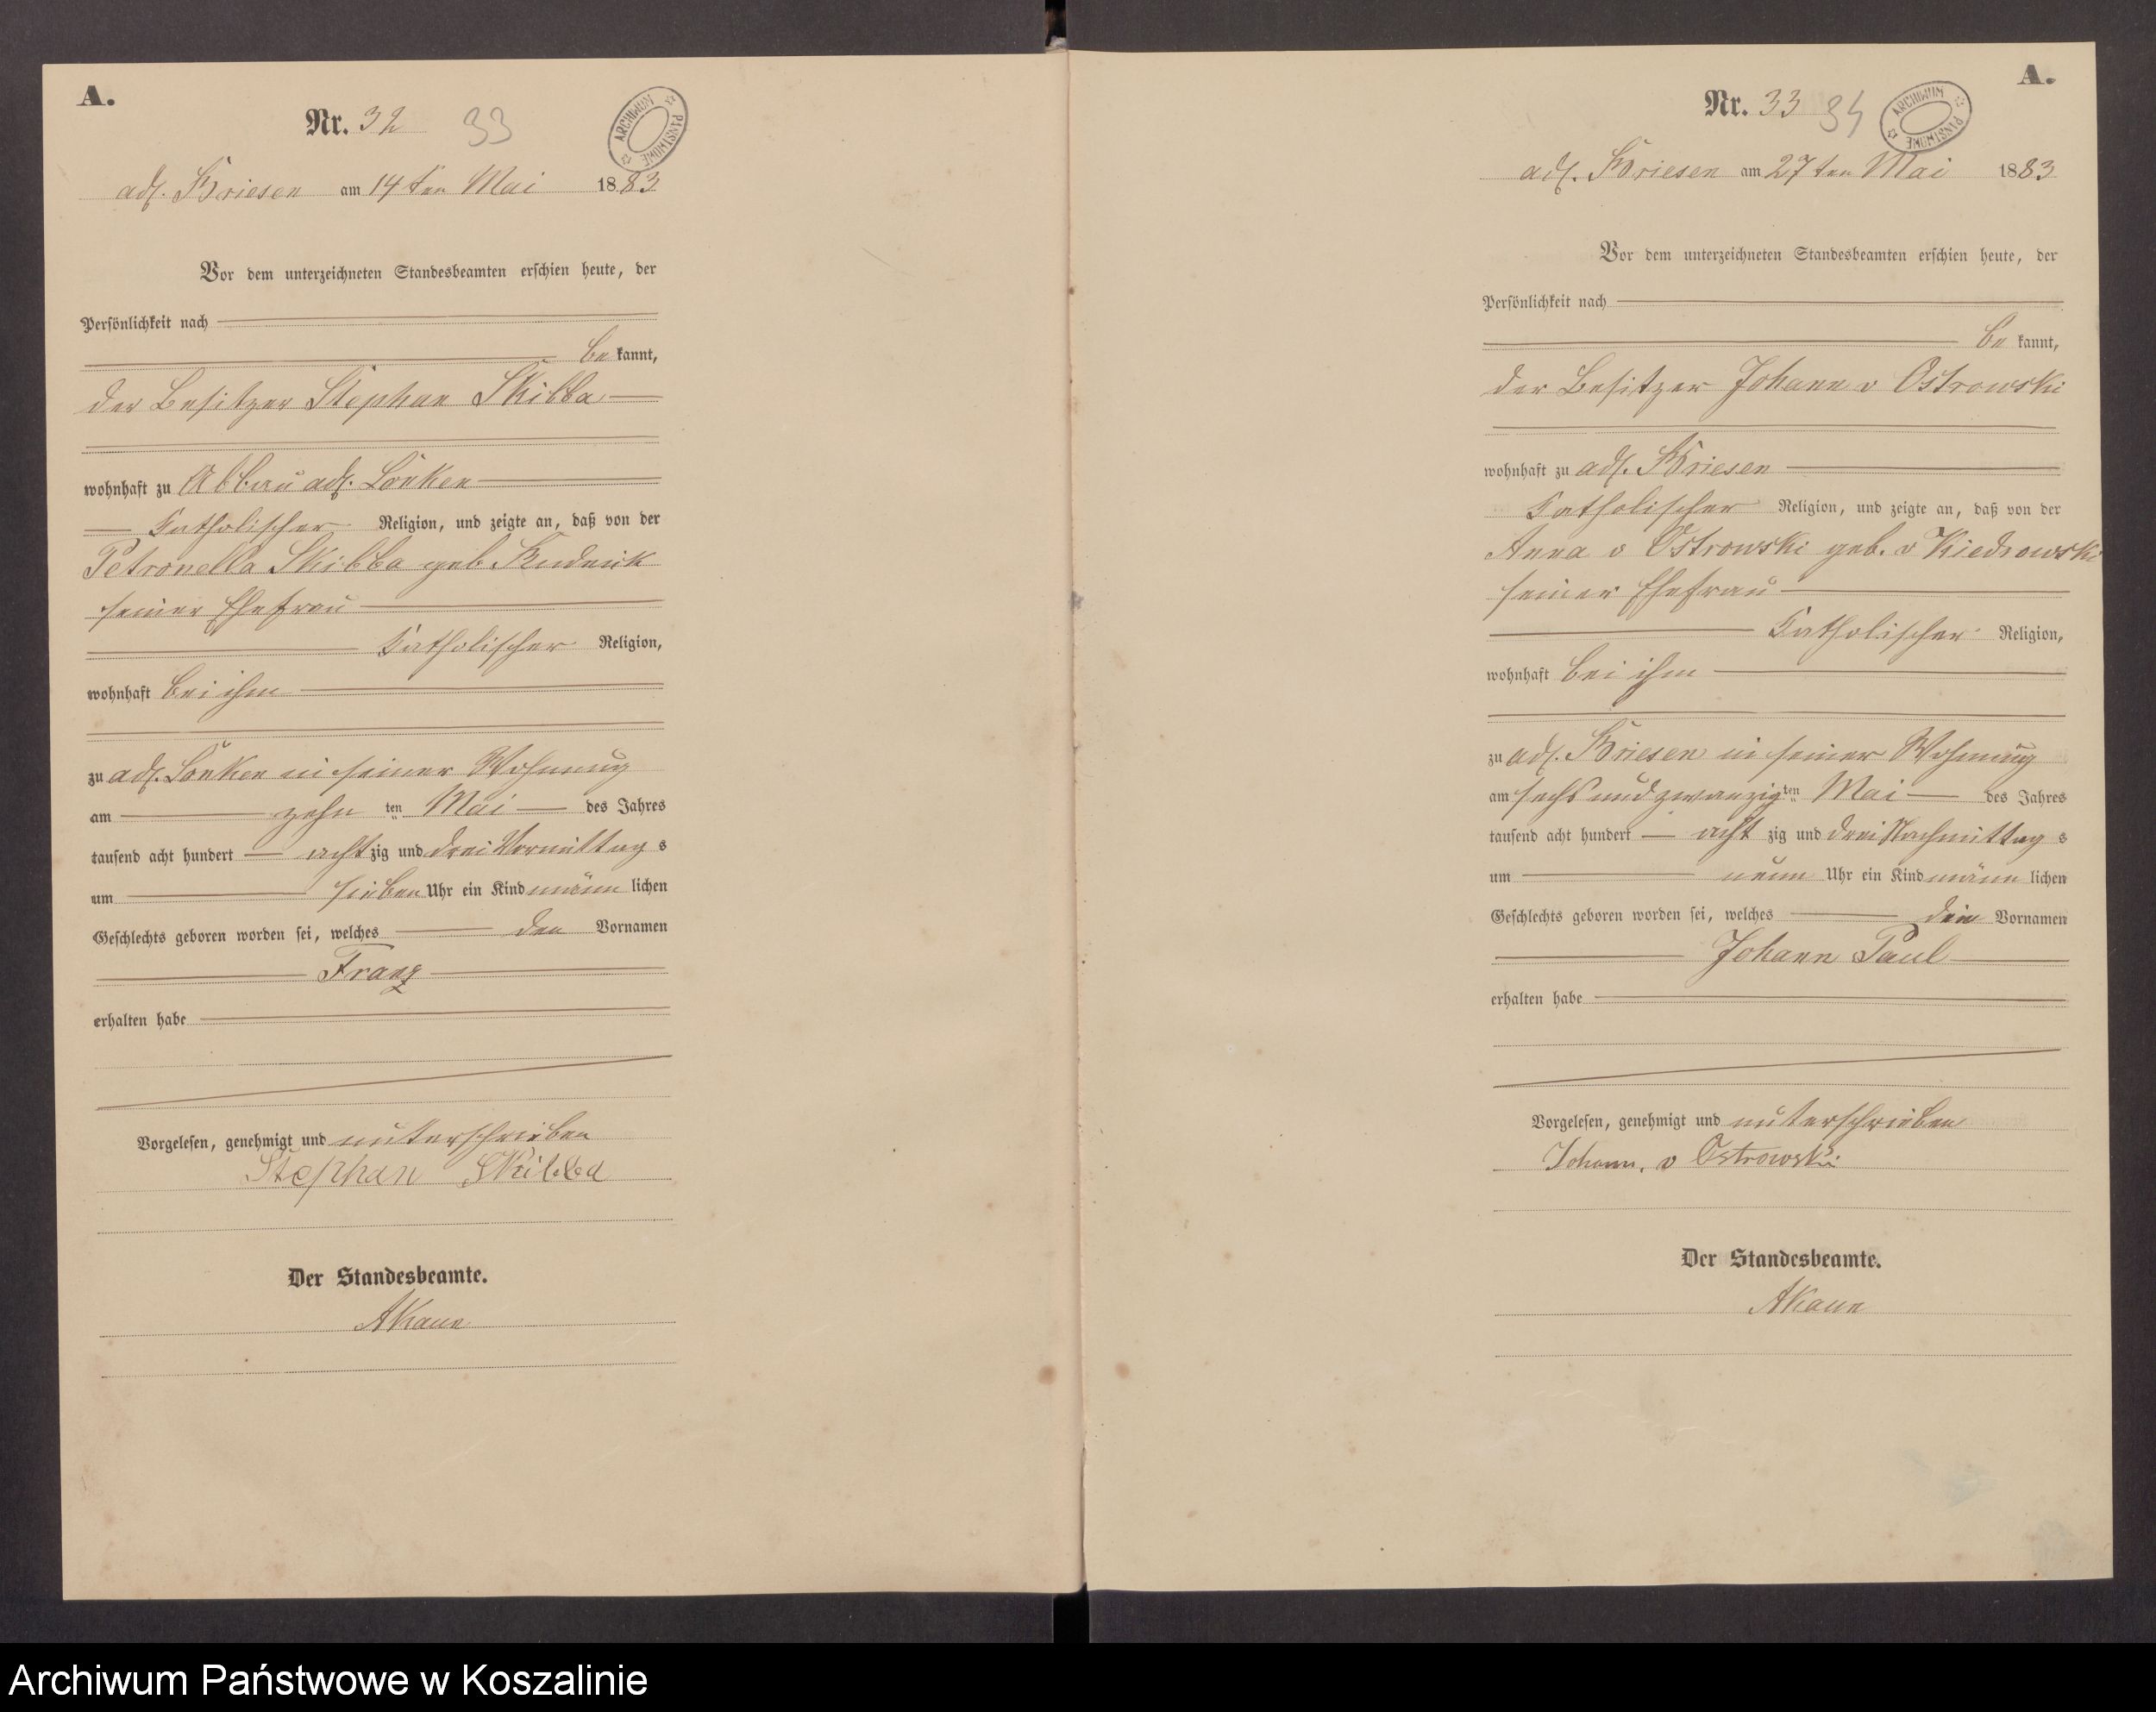 A.
Nr. 32 33
ARCHIWUM PAŃSTWOWE
adl. Briesen am 14ten Mai 1883
Vor dem unterzeichneten Standesbeamten erschien heute, der
Persönlichkeit nach
be kannt,
der Besitzer Stephan Skibba
wohnhaft zu Abbau adl. Lonken
katholischer Religion, und zeigte an, daß von der
Petronella Skibba geb
seiner Ehefrau
katholischer Religion,
wohnhaft bei ihm
zu adl. Lonken in seiner Wohnung
am zehn ten Mai des Jahres
tausend acht hundert acht zig und drei Vormittag s
um sieben Uhr ein Kind männ lichen
Geschlechts geboren worden sei, welches den Vornamen
Franz
erhalten habe
Vorgelesen, genehmigt und unterschrieben
Stephan Skibba
Der Standesbeamte.
A.
Nr. 33 34
ARCHIWUM PAŃSTWOWE
adl. Briesen am 27ten Mai 1883
Vor dem unterzeichneten Standesbeamten erschien heute, der
Persönlichkeit nach
be kannt,
der Besitzer Johann v Ostrowski
wohnhaft zu adl. Briesen
katholischer Religion, und zeigte an, daß von der
Anna v Ostrowski geb. v Kiedrowski
seiner Ehefrau
katholischer Religion,
wohnhaft bei ihm
zu adl. Briesen in seiner Wohnung
am sechs und zwanzig ten Mai des Jahres
tausend acht hundert acht zig und drei Nachmittag s
um neun Uhr ein Kind männ lichen
Geschlechts geboren worden sei, welches die Vornamen
Johann Paul
erhalten habe
Vorgelesen, genehmigt und unterschrieben
Johann. v Ostrowski
Der Standesbeamte.
Archiwum Państwowe w Koszalinie